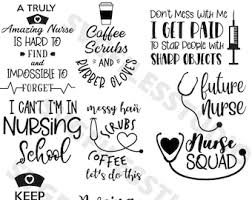 A TRULY
Amazing Nurse
IS HARD TO
FIND
and
IMPOSSIBLE TO
FORGET
Coffee
Scrubs
AND
RUBBER GLOVES
Don't Mess with Me
I GET PAID
TO Stab People with
SHARP OBJECTS
I CAN'T I'M IN
NURSING
School
messy hair
SCRUBS
COFFEE
let's do this
future
nurse
NURSE
SQUAD
KEEP